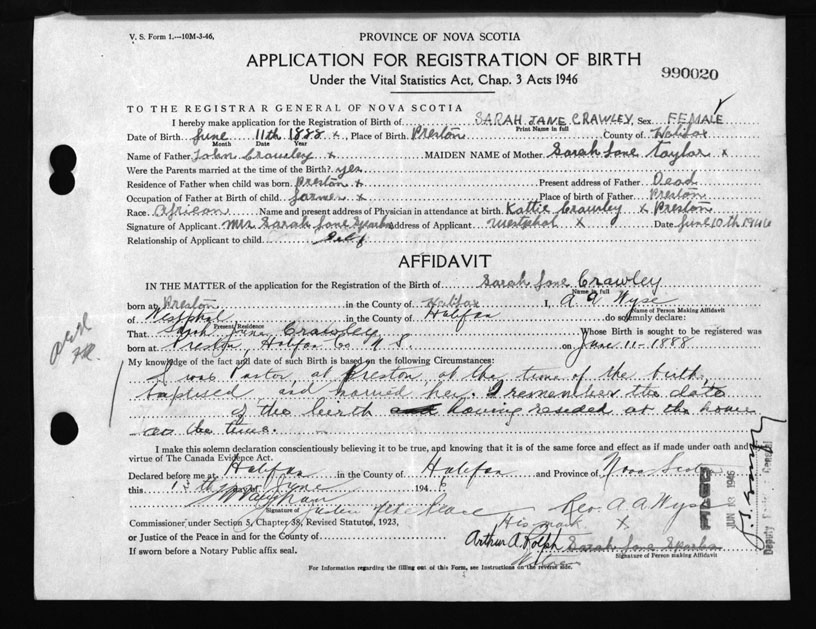 V. S. Form 1.—10M-3-46,
PROVINCE OF NOVA SCOTIA
APPLICATION FOR REGISTRATION OF BIRTH
990020
Under the Vital Statistics Act, Chap. 3 Acts 1946
TO THE REGISTRAR GENERAL OF NOVA SCOTIA
I hereby make application for the Registration of Birth of SARAH JANE CRAWLEY Sex FEMALE
Print Name in full
Date of Birth June 11th 1888 x, Place of Birth Preston County of Halifax
Month Date Year
Name of Father John Crawley x MAIDEN NAME of Mother Sarah Jane Taylor x
Were the Parents married at the time of the Birth? yes
Residence of Father when child was born Preston x Present address of Father Dead
Occupation of Father at Birth of child farmer x Place of birth of Father Preston
Race African Name and present address of Physician in attendance at birth Kattie Crawley x Preston
Signature of Applicant Mrs Sarah Jane Sparks Address of Applicant Westphal x Date June 10th 1946
Relationship of Applicant to child Self
AFFIDAVIT
IN THE MATTER of the application for the Registration of the Birth of Sarah Jane Crawley
Name in full
born at Preston in the County of Halifax I, A A Wyse
Name of Person Making Affidavit
of Westphal in the County of Halifax do solemnly declare:
Present Residence
That Sarah Jane Crawley Whose Birth is sought to be registered was
born at Preston, Halifax Co. N S. on June 11-1888
My knowledge of the fact and date of such Birth is based on the following Circumstances:
I was Pastor at Preston at the time of the birth,
baptised and married her. I remember the date
of the birth having resided at the house
at the time.
I make this solemn declaration conscientiously believing it to be true, and knowing that it is of the same force and effect as if made under oath and by
virtue of The Canada Evidence Act.
Declared before me at Halifax in the County of Halifax and Province of Nova Scotia
this 13 day of June 1946
Signature of Justice of the Peace Rev. A. A Wyse
Commissioner under Section 5, Chapter 38, Revised Statutes, 1923, His mark X
or Justice of the Peace in and for the County of Arthur A. Rolph Sarah Jane Sparks
Signature of Person making Affidavit
If sworn before a Notary Public affix seal. Witness
For Information regarding the filling out of this Form, see Instructions on the reverse side.
FILED
JUN 13 1946
Deputy Registrar General